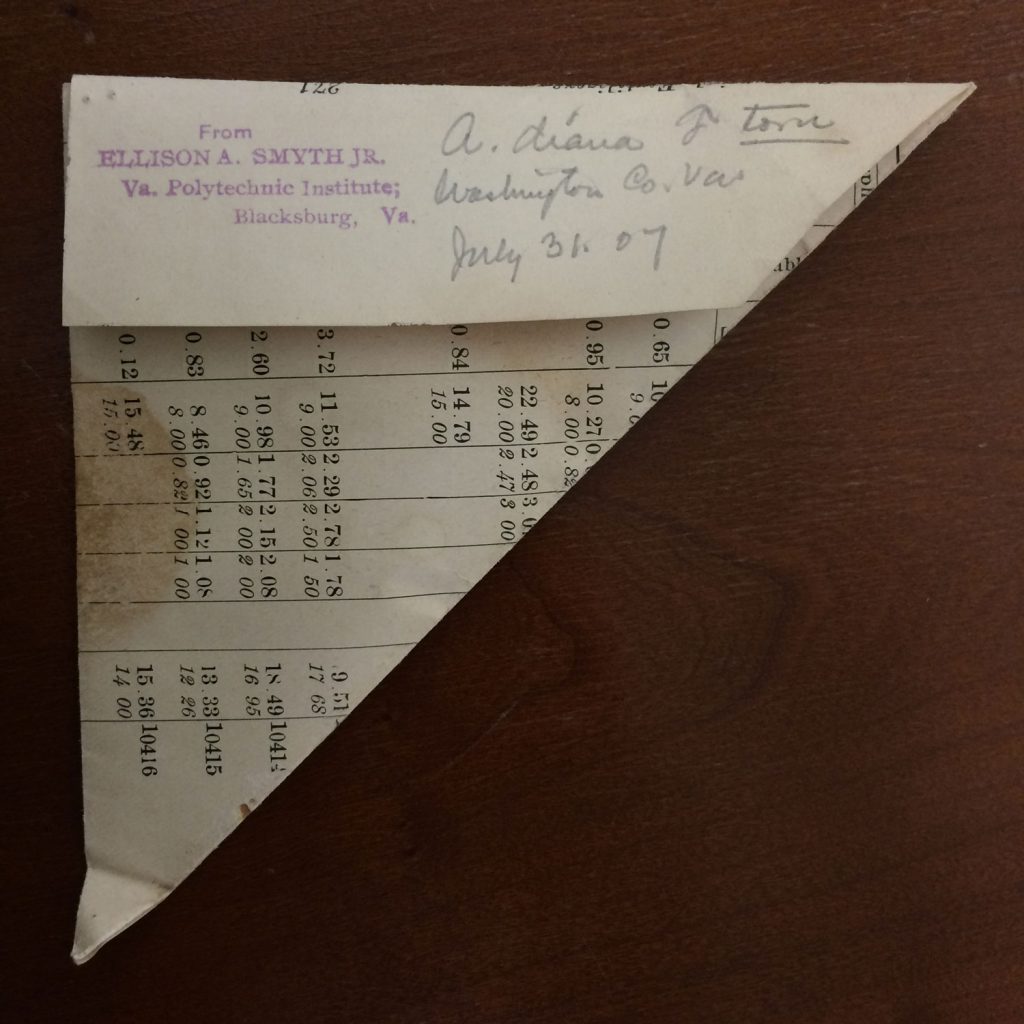 271
From
ELLISON A. SMYTH JR.
Va. Polytechnic Institute;
Blacksburg, Va.
A. diana F torn
Washington Co. Va
July 31. 07
0.65
0.95 10.27
8.00 0.82
22.49 2.48
20.00 2.47 3 00
0.84 14.79
15.00
3.72 11.53 2.29 2.78 1.78 9.51
9.00 2.06 2.50 1 50 17 68
2.60 10.98 1.77 2.15 2.08 18.49
9.00 1.65 2 00 2 00 16 95
0.83 8.46 0.92 1.12 1.08 13.33 10415
8.00 0.82 1 00 1 00 12 26
0.12 15.48 15.36 10416
15.00 14 00